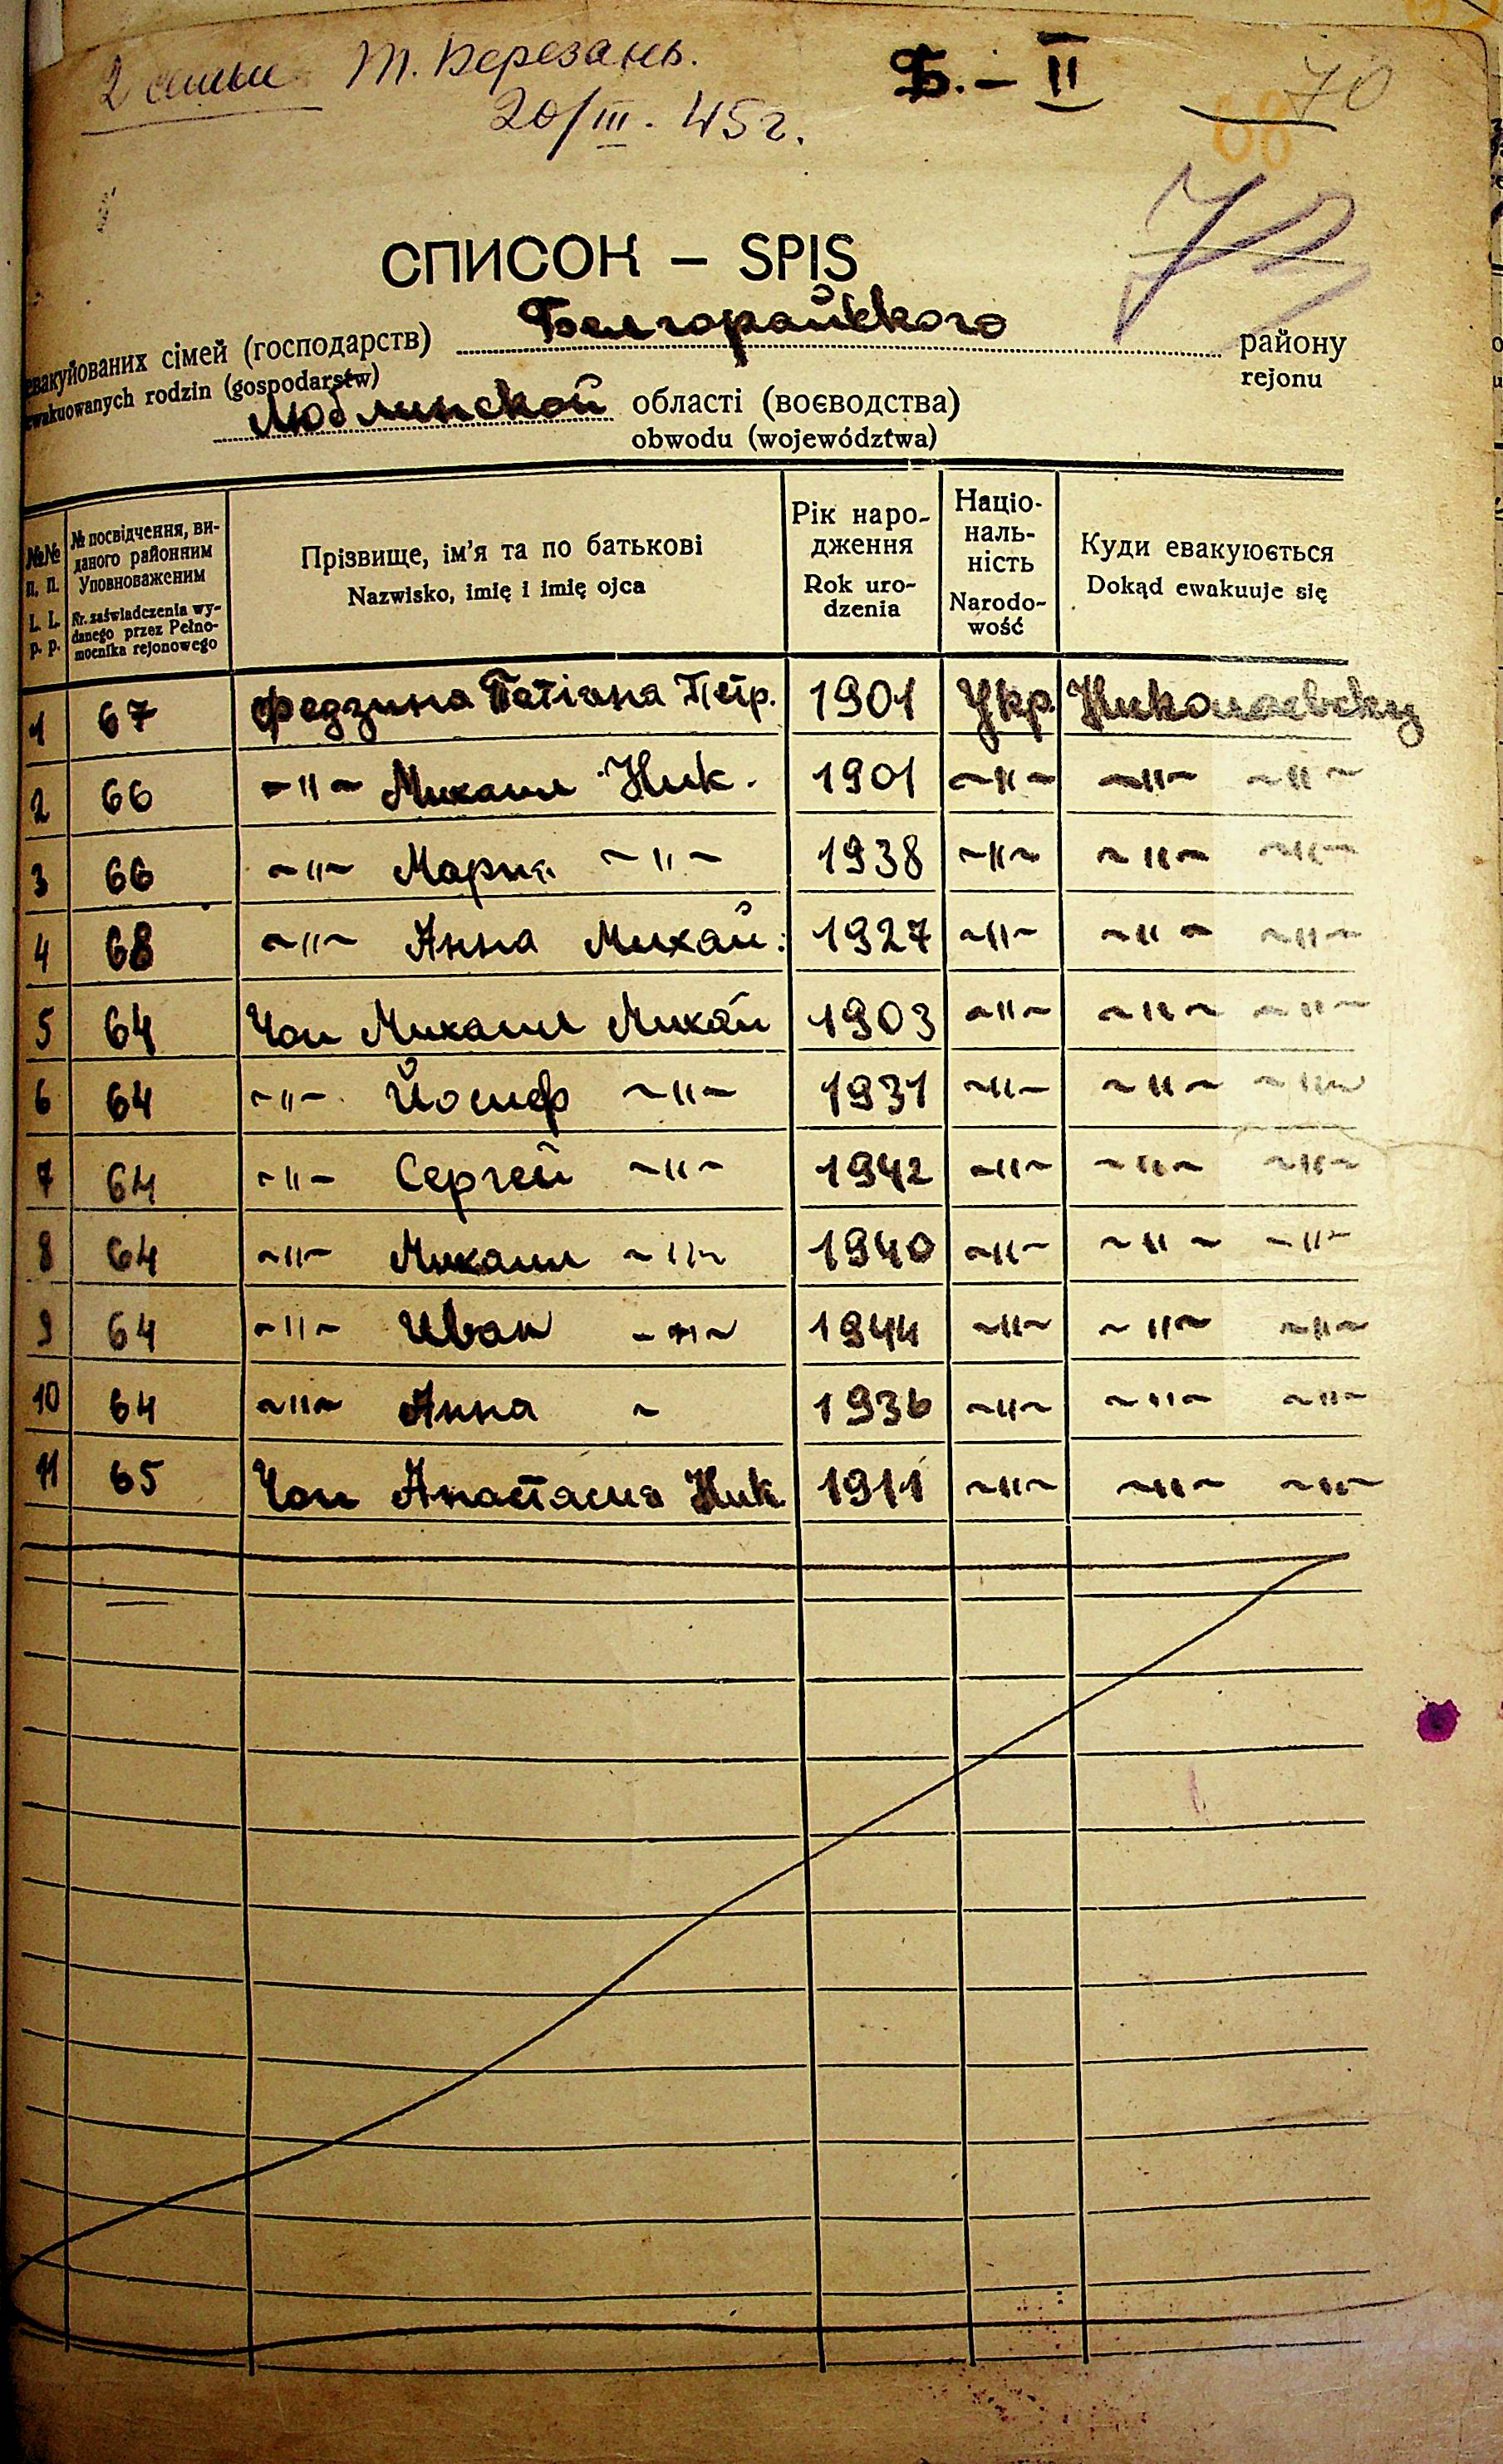 2 семьи Т. Березань. Б. – II 70
20/III. 45 г. 68
72
СПИСОК – SPIS
евакуйованих сімей (господарств) Белгорайского району
ewakuowanych rodzin (gospodarstw) rejonu
Люблинской області (воєводства)
obwodu (województwa)
№№ п. п. № посвідчення, виданого районним Уповноваженим Прізвище, ім'я та по батькові Рік народження Національність Куди евакуюється
L. L. p. p. Nr. zaświadczenia wydanego przez Pełnomocnika rejonowego Nazwisko, imię i imię ojca Rok urodzenia Narodowość Dokąd ewakuuje się
1 67 Федзина Татіяна Петр. 1901 Укр. Николаевску
2 66 ~"~ Михаил Ник. 1901 ~"~ ~"~ ~"~
3 66 ~"~ Мария ~"~ 1938 ~"~ ~"~ ~"~
4 68 ~"~ Анна Михай. 1927 ~"~ ~"~ ~"~
5 64 Чоп Михаил Михай 1903 ~"~ ~"~ ~"~
6 64 ~"~ Йосиф ~"~ 1931 ~"~ ~"~ ~"~
7 64 ~"~ Сергей ~"~ 1942 ~"~ ~"~ ~"~
8 64 ~"~ Михаил ~"~ 1940 ~"~ ~"~ ~"~
9 64 ~"~ Иван ~"~ 1944 ~"~ ~"~ ~"~
10 64 ~"~ Анна ~ 1936 ~"~ ~"~ ~"~
11 65 Чоп Анастасия Ник 1911 ~"~ ~"~ ~"~